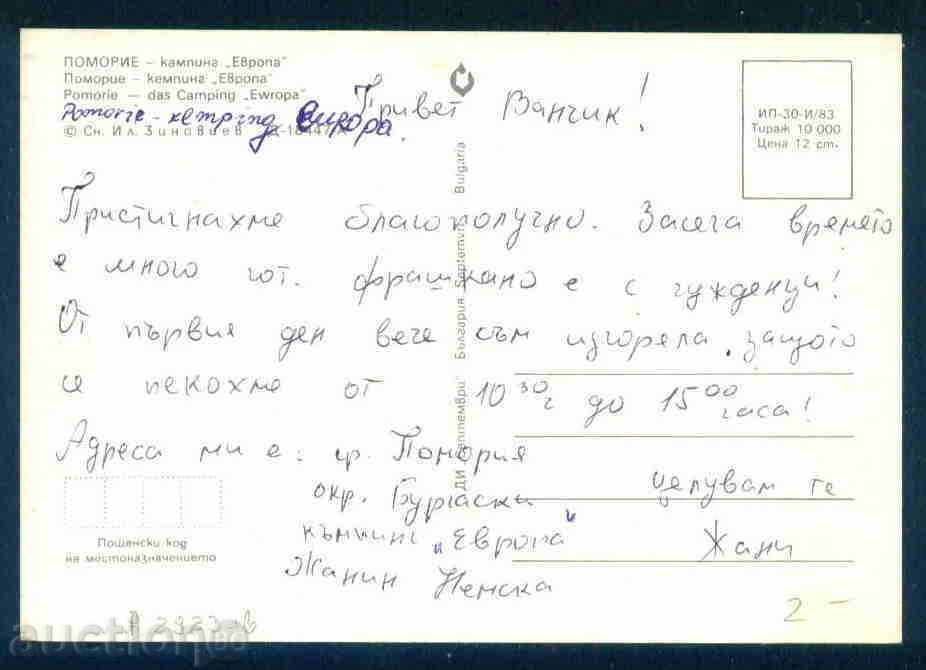 ПОМОРИЕ – кампинга „Европа"
Поморие – кемпинг „Европа"
Pomorie – das Camping „Ewropa"
Pomorie - kemping Европа.
© Сн. Ил. Зиновиев Д-18447-А
ИП-30-И/83
Тираж 10 000
Цена 12 ст.
Привет Ванчик!
Пристигнахме благополучно. Засега времето
е много гот. фрашкано е с чужденци!
От първия ден вече съм изгоряла, защото
се пекохме от 10 30 ч до 15 00 часа!
Адреса ми е: гр. Помория
окр. Бургаски
къмпинг „Европа"
Жанин Немска
целувам те
Жани
ДИ „Септември" България Septemvri Bulgaria
Пощенски код
на местоназначението
A 2923-б
2 –
auction